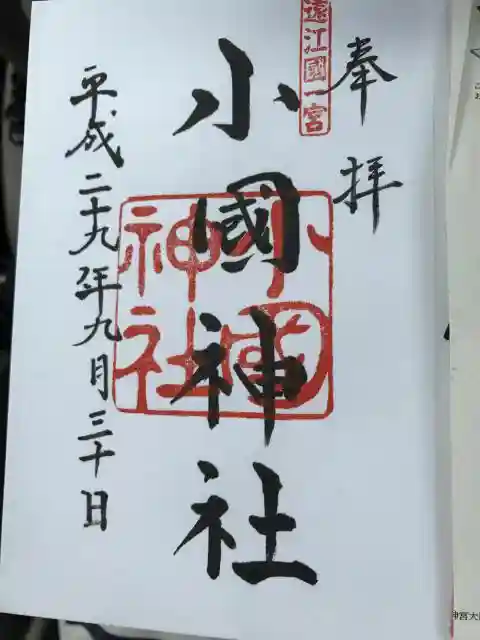 奉拝
遠江國一宮
小國神社
小國神社
平成二十九年九月三十日
神宮大